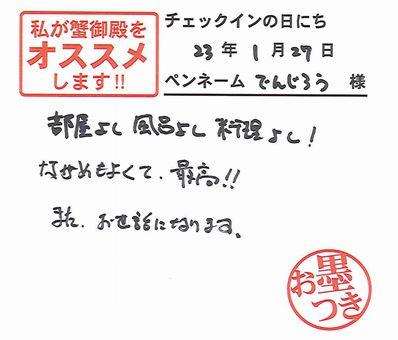 私が蟹御殿を
オススメ
します!!
チェックインの日にち
23年1月27日
ペンネーム でんじろう 様
部屋よし 風呂よし 料理よし!
ながめもよくて、最高!!
また、お世話になります。
お墨つき